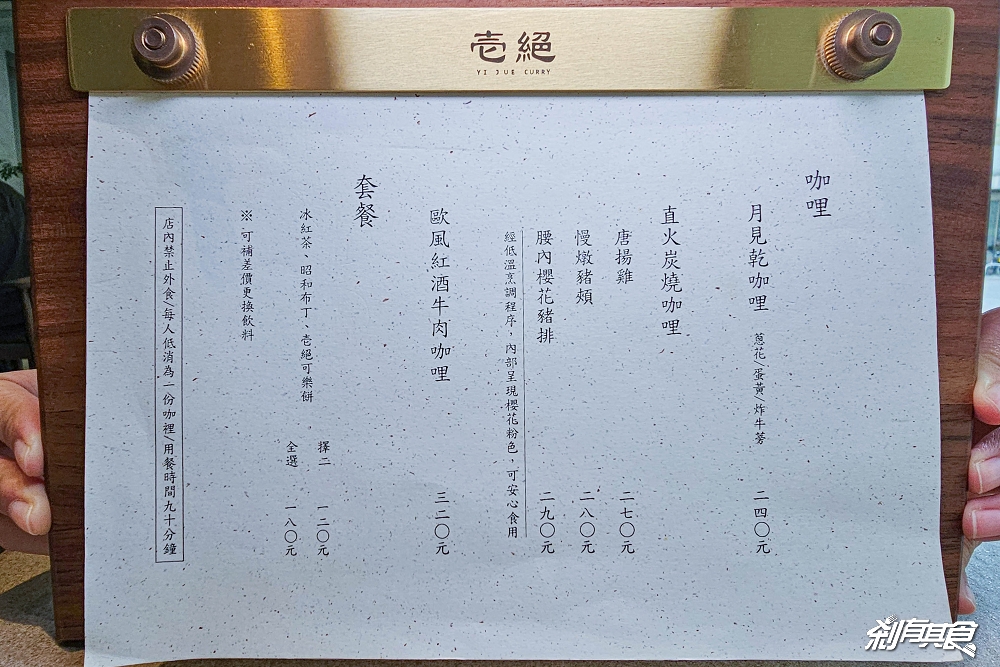 壱絕
YI JUE CURRY
咖哩
月見乾咖哩 蔥花/蛋黃/炸牛蒡 二四〇元
直火炭燒咖哩
唐揚雞 二七〇元
慢燉豬頰 二八〇元
腰內櫻花豬排 二九〇元
經低溫烹調程序，內部呈現櫻花粉色，可安心食用
歐風紅酒牛肉咖哩 三二〇元
套餐
冰紅茶、昭和布丁、壱絕可樂餅，擇二 一二〇元
全選 一八〇元
※ 可補差價更換飲料
店內禁止外食/每人低消為一份咖裡/用餐時間九十分鐘
剎有其食